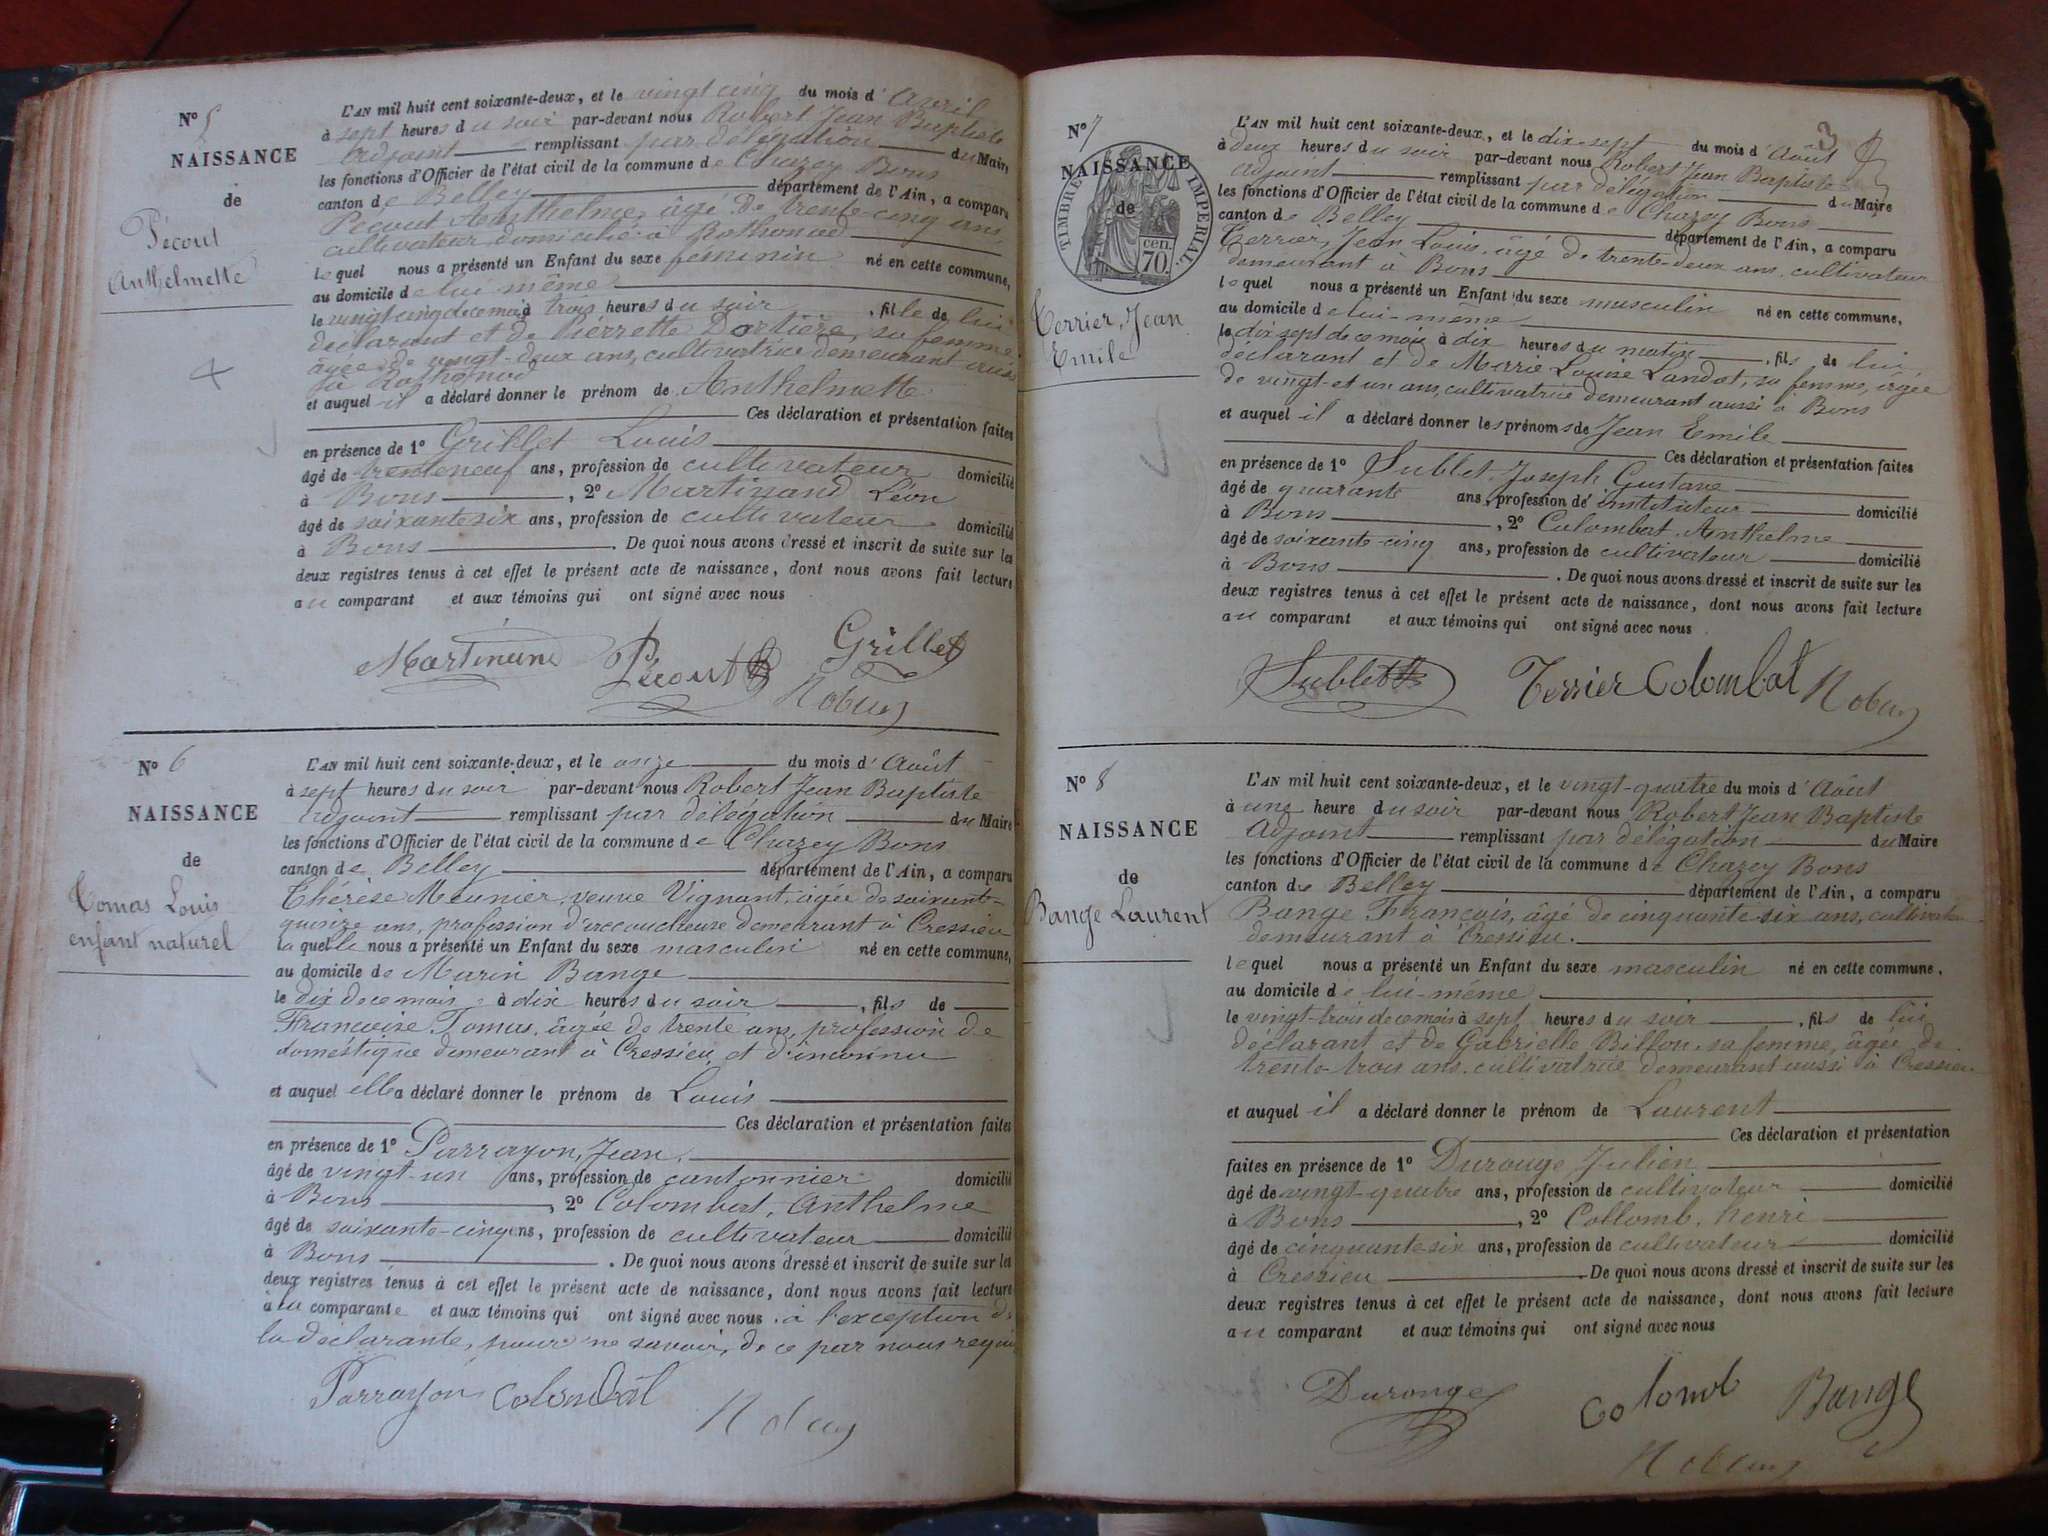 N° 5
NAISSANCE
de
Pécout
Anthelmette
L'AN mil huit cent soixante-deux, et le vingt cinq du mois d'Avril
à sept heures du soir par-devant nous Robert Jean Baptiste
Adjoint remplissant par délégation du Maire
les fonctions d'Officier de l'état civil de la commune de Chazey Bons
canton de Belley département de l'Ain, a comparu
Pecout Anthelme, âgé de trente-cinq ans,
cultivateur, domicilié à Rothonod
lequel nous a présenté un Enfant du sexe feminin né en cette commune,
au domicile de lui même
le vingt cinq de ce mois à trois heures du soir, fille de lui
déclarant et de Pierrette Dortière, sa femme
agée de vingt-deux ans, cultivatrice demeurant aussi
à Rothonod
et auquel il a déclaré donner le prénom de Anthelmette
Ces déclaration et présentation faites
en présence de 1° Grillet Louis
âgé de trente neuf ans, profession de cultivateur domicilié
à Bons, 2° Martinand Léon
âgé de soixante six ans, profession de cultivateur domicilié
à Bons. De quoi nous avons dressé et inscrit de suite sur les
deux registres tenus à cet effet le présent acte de naissance, dont nous avons fait lecture
au comparant et aux témoins qui ont signé avec nous
Martinand Pécout Grillet
Robert
N° 6
NAISSANCE
de
Tomas Louis
enfant naturel
L'AN mil huit cent soixante-deux, et le onze du mois d'Août
à sept heures du soir par-devant nous Robert Jean Baptiste
adjoint remplissant par délégation du Maire
les fonctions d'Officier de l'état civil de la commune de Chazey Bons
canton de Belley département de l'Ain, a comparu
Thérèse Meunier, veuve Vignant, agée de soixante-
quinze ans, profession d'accoucheuse demeurant à Cressieu
laquelle nous a présenté un Enfant du sexe masculin né en cette commune,
au domicile de Marin Bange
le dix de ce mois, à dix heures du soir, fils de
Francoise Tomas, âgée de trente ans, profession de
doméstique demeurant à Cressieu et d'inconnu
et auquel elle a déclaré donner le prénom de Louis
Ces déclaration et présentation faites
en présence de 1° Parrayon, Jean
âgé de vingt-un ans, profession de cantonnier domicilié
à Bons, 2° Colombat, Anthelme
âgé de soixante-cinq ans, profession de cultivateur domicilié
à Bons. De quoi nous avons dressé et inscrit de suite sur les
deux registres tenus à cet effet le présent acte de naissance, dont nous avons fait lecture
à la comparante et aux témoins qui ont signé avec nous, à l'exception de
la déclarante, pour ne savoir, de ce par nous requi
Parrayon Colombat
Robert
3
N° 7
NAISSANCE
de
TIMBRE IMPERIAL
70 cen.
Terrier, Jean
Emile
L'AN mil huit cent soixante-deux, et le dix-sept du mois d'Août
à deux heures du soir par-devant nous Robert Jean Baptiste
Adjoint remplissant par délégation du Maire
les fonctions d'Officier de l'état civil de la commune de Chazey Bons
canton de Belley département de l'Ain, a comparu
Terrier, Jean Louis, âgé de trente-deux ans, cultivateur
demeurant à Bons
lequel nous a présenté un Enfant du sexe masculin né en cette commune,
au domicile de lui-même
le dix sept de ce mois à dix heures du matin, fils de lui
déclarant et de Marie Louise Landot, sa femme, agée
de vingt-et un ans, cultivatrice demeurant aussi à Bons
et auquel il a déclaré donner les prénoms de Jean Emile
Ces déclaration et présentation faites
en présence de 1° Sublet, Joseph Gustave
âgé de quarante ans, profession de instituteur domicilié
à Bons, 2° Colombat, Anthelme
âgé de soixante-cinq ans, profession de cultivateur domicilié
à Bons. De quoi nous avons dressé et inscrit de suite sur les
deux registres tenus à cet effet le présent acte de naissance, dont nous avons fait lecture
au comparant et aux témoins qui ont signé avec nous
Sublet Terrier Colombat Robert
N° 8
NAISSANCE
de
Bange Laurent
L'AN mil huit cent soixante-deux, et le vingt-quatre du mois d'Août
à une heure du soir par-devant nous Robert Jean Baptiste
Adjoint remplissant par délégation du Maire
les fonctions d'Officier de l'état civil de la commune de Chazey Bons
canton de Belley département de l'Ain, a comparu
Bange François, âgé de cinquante-six ans, cultivateur
demeurant à Cressieu.
lequel nous a présenté un Enfant du sexe masculin né en cette commune,
au domicile de lui-même
le vingt-trois de ce mois à sept heures du soir, fils de lui
déclarant et de Gabrielle Billon, sa femme, âgée de
trente-trois ans, cultivatrice demeurant aussi à Cressieu
et auquel il a déclaré donner le prénom de Laurent
Ces déclaration et présentation
faites en présence de 1° Durouge Julien
âgé de vingt-quatre ans, profession de cultivateur domicilié
à Bons, 2° Collomb, henri
âgé de cinquante six ans, profession de cultivateur domicilié
à Cressieu. De quoi nous avons dressé et inscrit de suite sur les
deux registres tenus à cet effet le présent acte de naissance, dont nous avons fait lecture
au comparant et aux témoins qui ont signé avec nous
Durouge Colomb Bange
Robert